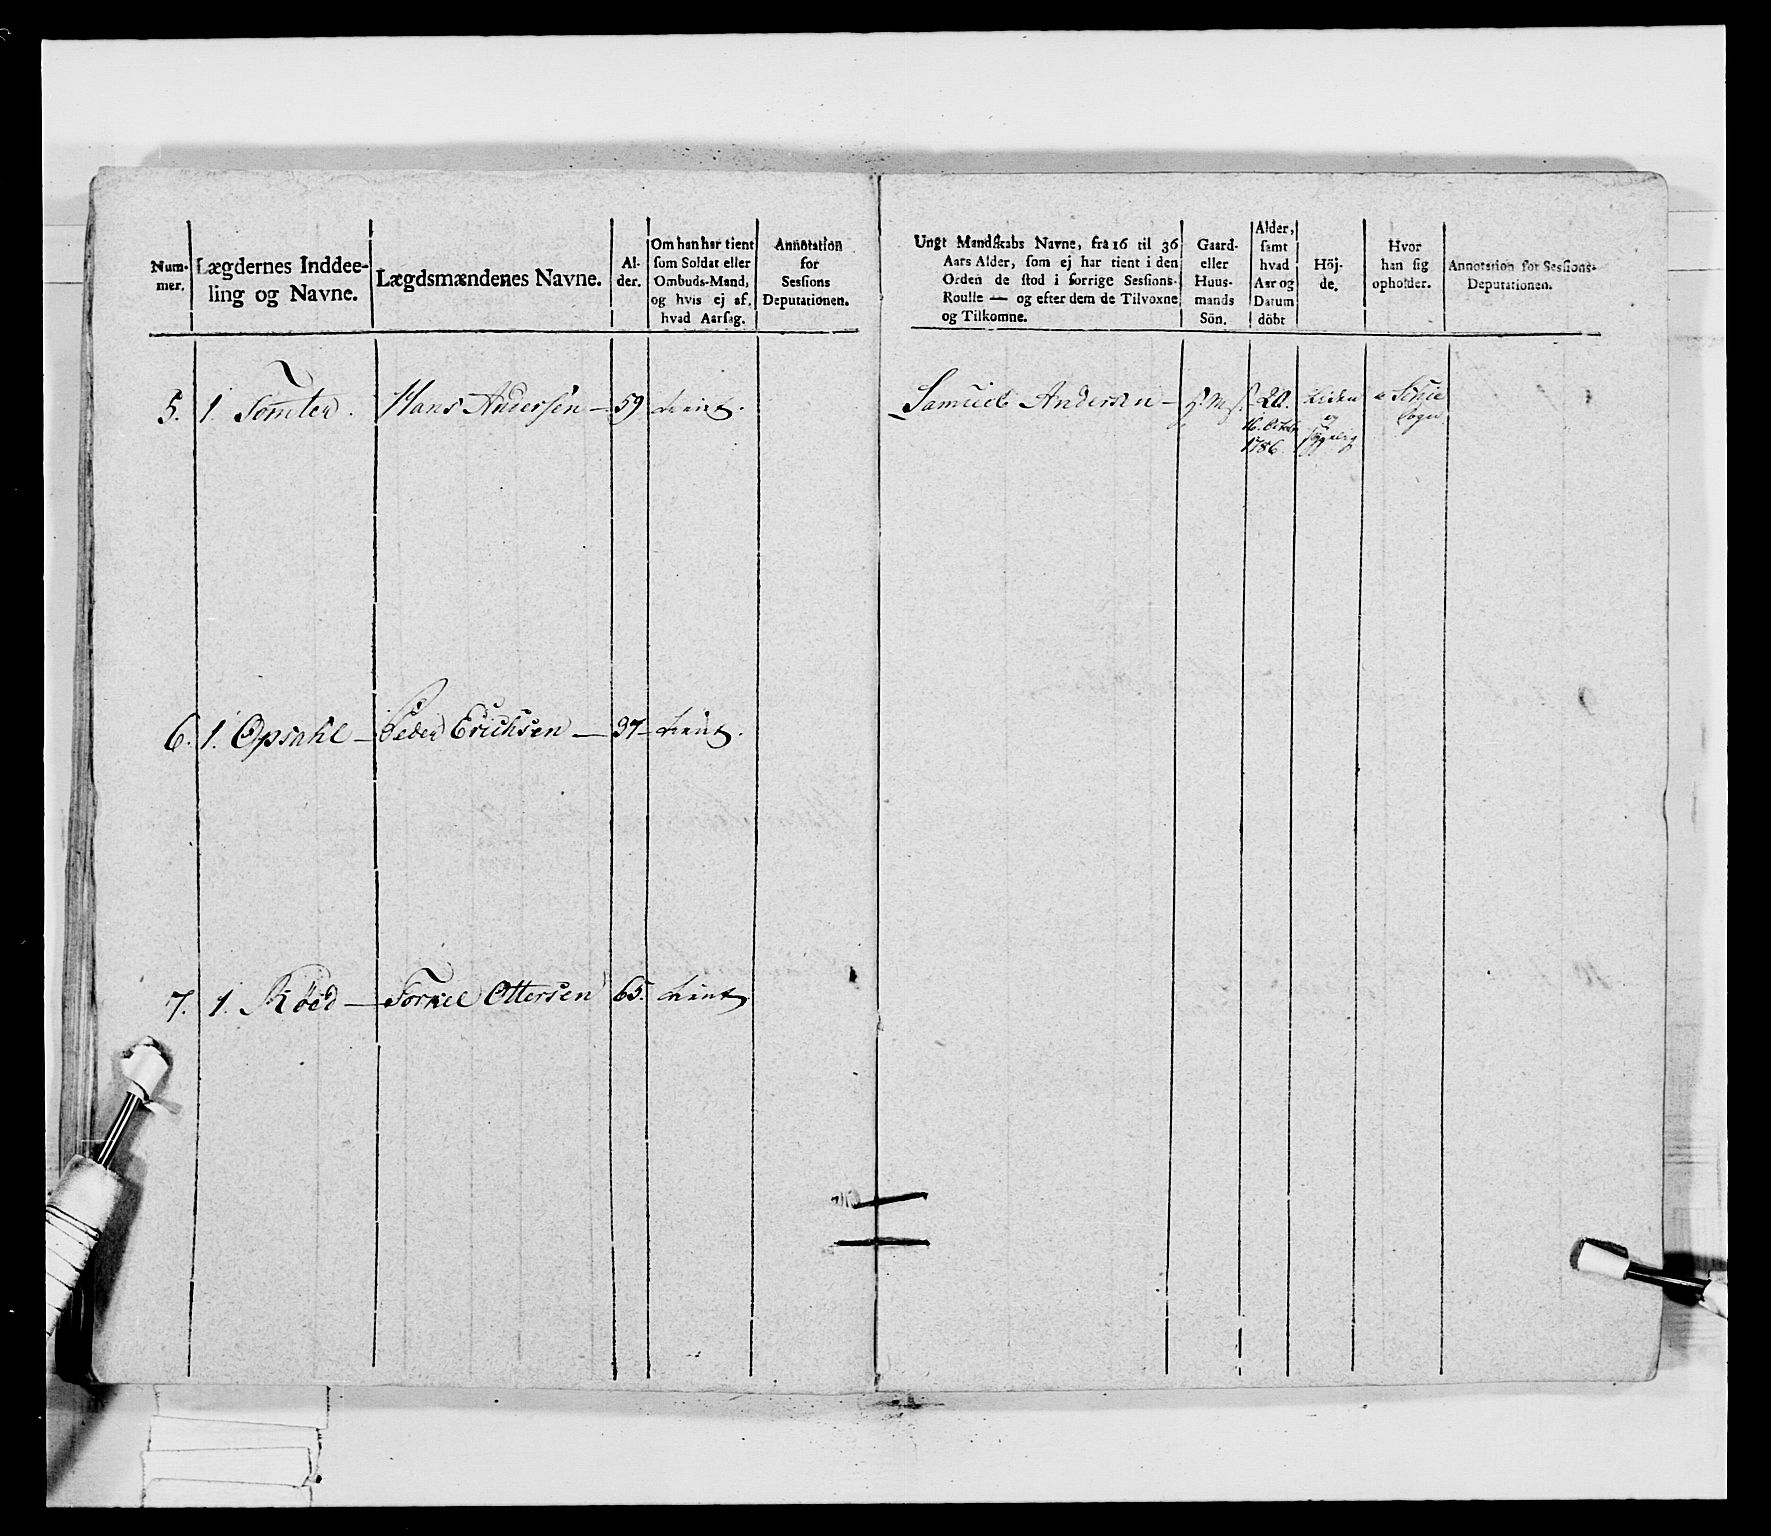 Num-
mer.
Lægdernes Inddee-
ling og Navne.
Lægdsmændenes Navne.
Al-
der.
Om han har tient
som Soldat eller
Ombuds-Mand,
og hvis ej af,
hvad Aarsag.
Annotation
for
Sessions
Deputationen.
Ungt Mandskabs Navne, fra 16 til 36
Aars Alder, som ej har tient i den
Orden de stod i forrige Sessions-
Roulle — og efter dem de Tilvoxne
og Tilkomne.
Gaard-
eller
Huus-
mands
Sön.
Alder,
samt
hvad
Aar og
Datum
döbt
Höj-
de.
Hvor
han sig
opholder.
Annotation for Sessions-
Deputationen.
5. 1. Tomter. Hans Andersen — 59 tient. Samuel Andersen — 20. Liden
16. Octobr og
1786
6. 1. Opsahl — Peder Erichsen — 37 — tient.
7. 1. Röed — Torkel Ottersen 65. tient